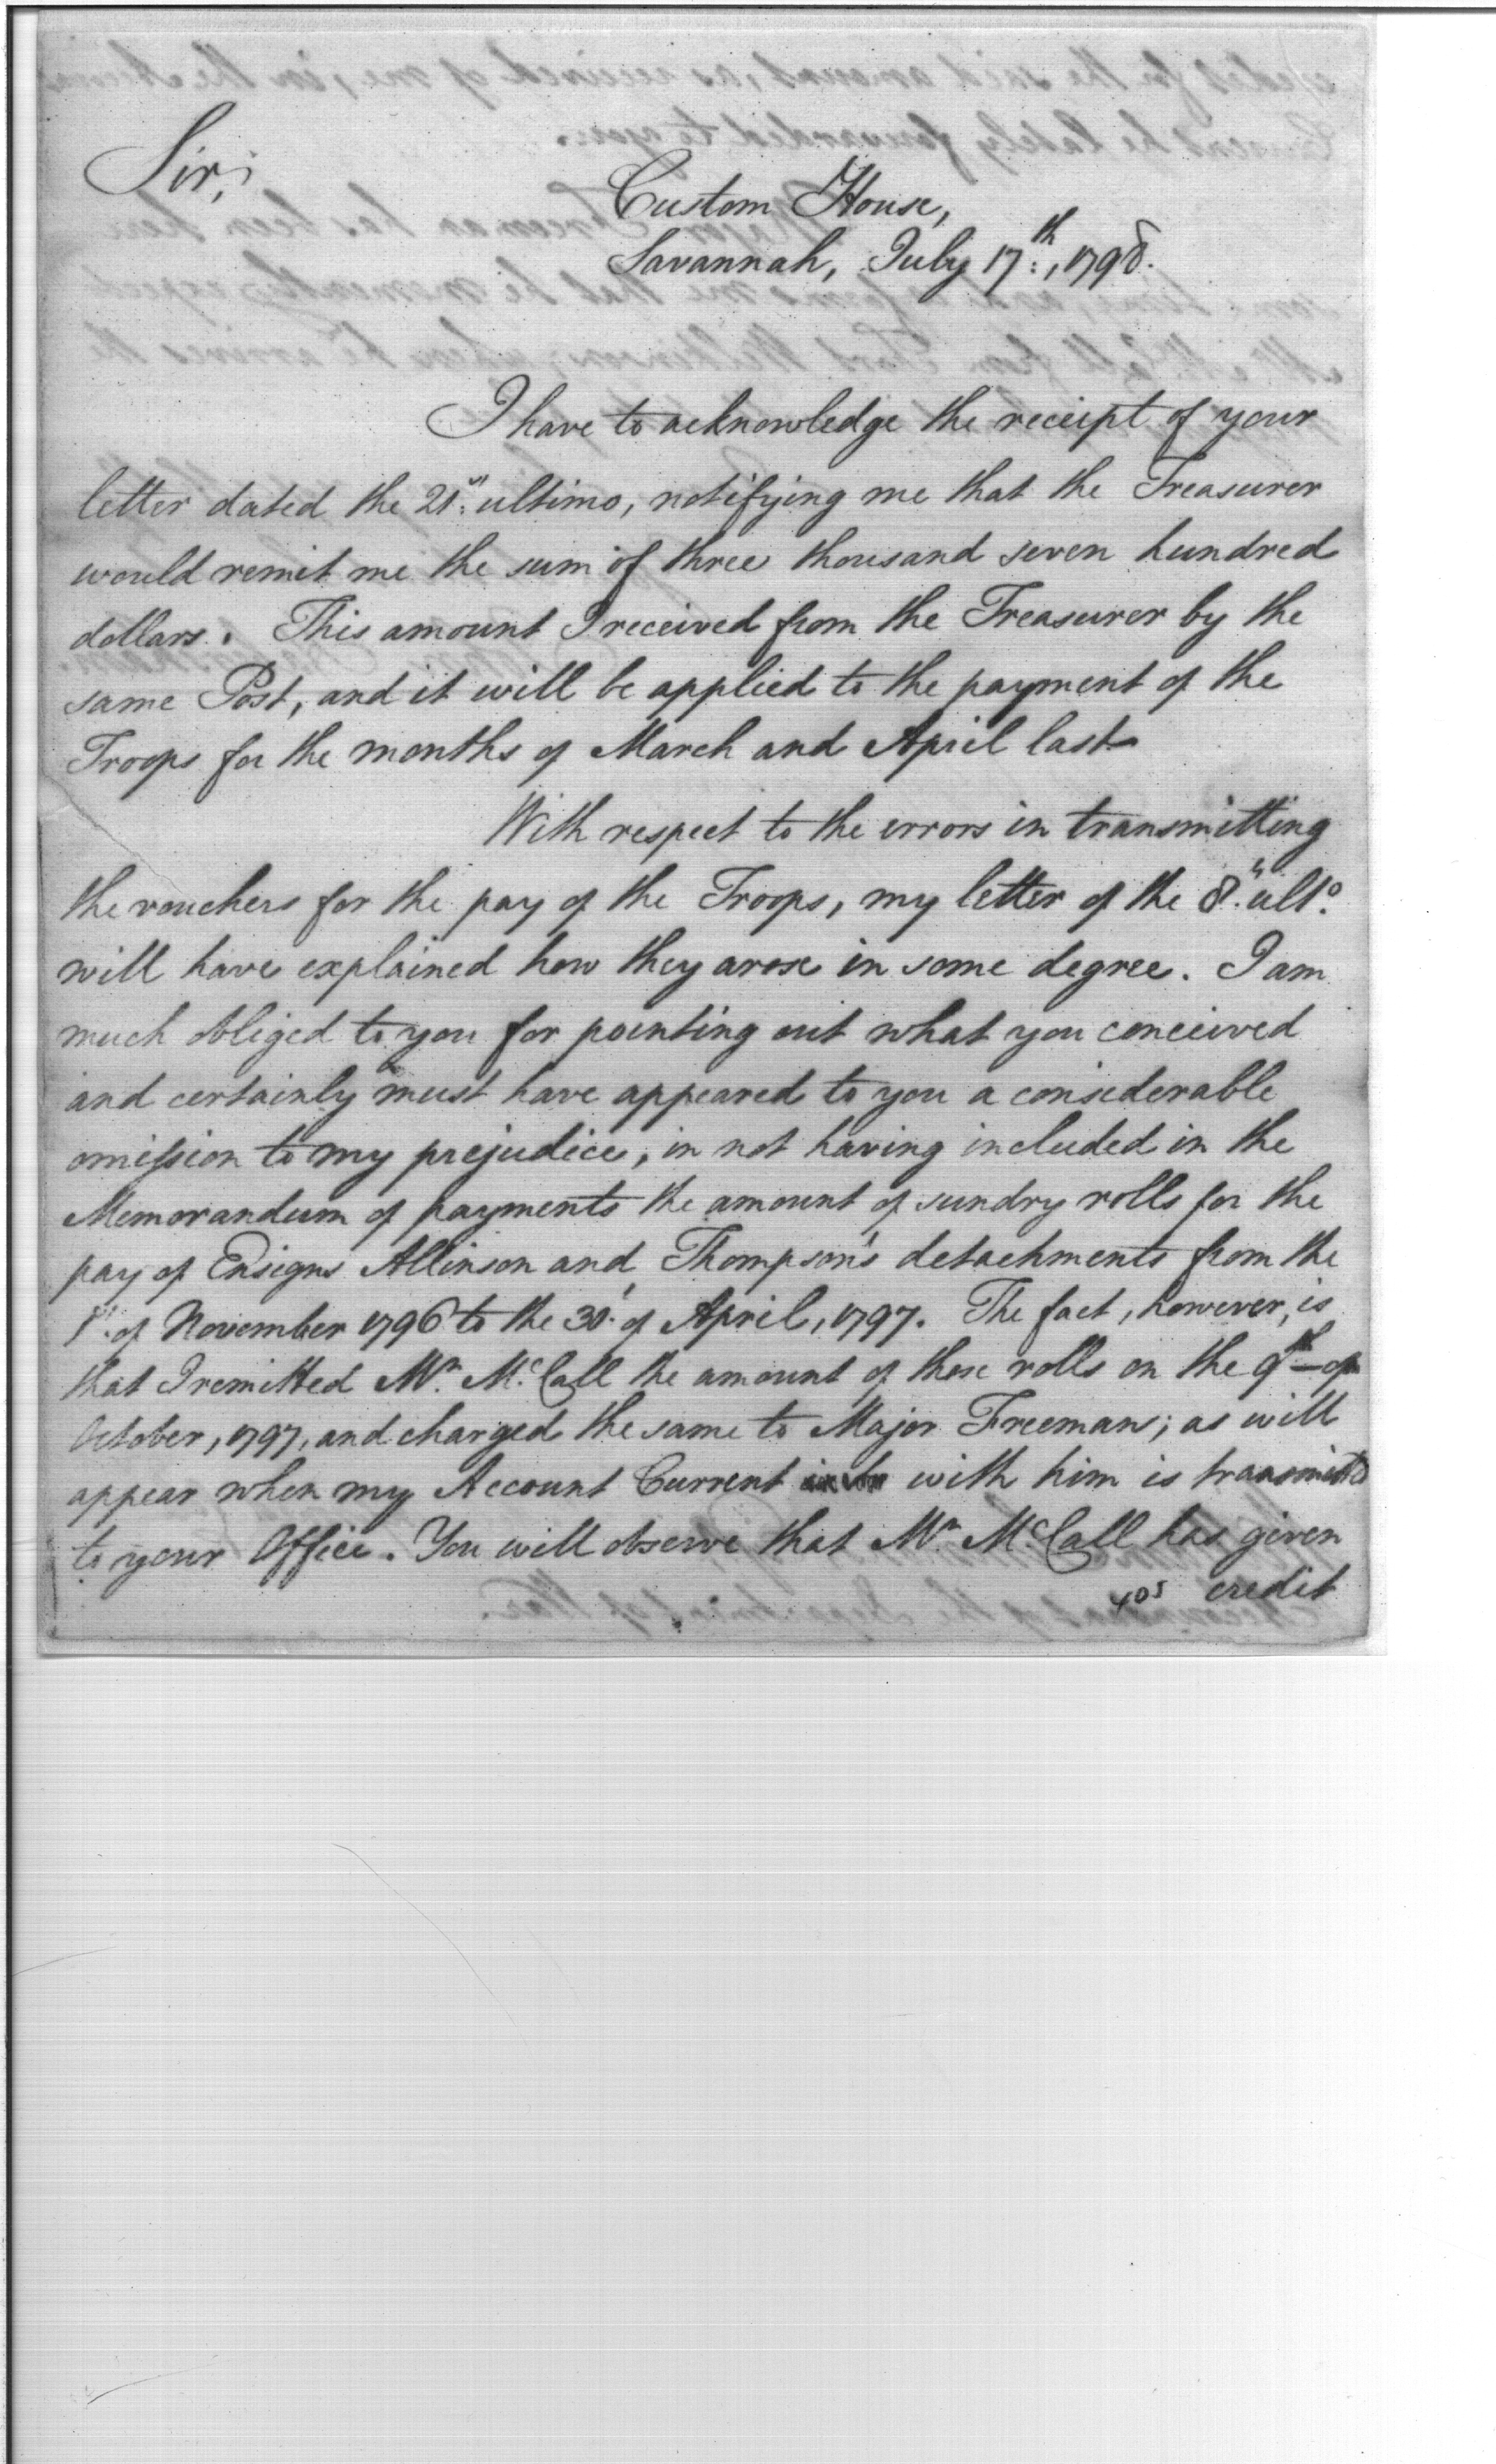 Sir,
Custom House,
Savannah, July 17th:, 1798.
I have to acknowledge the receipt of your
letter dated the 21st: ultimo, notifying me that the Treasurer
would remit me the sum of three thousand seven hundred
dollars. This amount I received from the Treasurer by the
same Post, and it will be applied to the payment of the
Troops for the months of March and April last
With respect to the errors in transmitting
the vouchers for the pay of the Troops, my letter of the 8th. ulto.
will have explained how they arose in some degree. I am
much obliged to you for pointing out what you conceived
and certainly must have appeared to you a considerable
omission to my prejudice, in not having included in the
Memorandum of payments the amount of sundry rolls for the
pay of Ensigns Allinson and Thompson's detachments from the
1st. of November 1796 to the 30th. of April, 1797. The fact, however, is
that I remitted Mr. McCall the amount of these rolls on the 9th of
October, 1797, and charged the same to Major Freeman; as will
appear when my Account Current with him is transmitt'd
to your Office. You will observe that Mr. McCall has given
405 credit